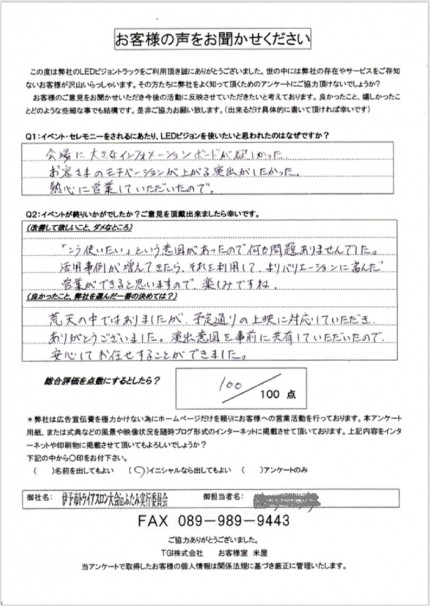 お客様の声をお聞かせください
この度は弊社のLEDビジョントラックをご利用頂き誠にありがとうございました。世の中には弊社の存在やサービスをご存知
ないお客様が沢山いらっしゃいます。その方たちに弊社をよく知って頂くためのアンケートにご協力頂けないでしょうか？
お客様のご意見をお聞かせいただき今後の活動に反映させていただきたいと考えております。良かったこと、嬉しかったこ
とどのような些細な事でも結構です。是非ご協力お願い致します。（出来るだけ具体的に書いて頂ければ幸いです）
Q1：イベント・セレモニーをされるにあたり、LEDビジョンを使いたいと思われたのはなぜですか？
会場に大きなインフォメーションボードが欲しかった。
お客さまのモチベーションが上がる演出がしたかった。
熱心に営業していただいたので。
Q2：イベントが終りいかがでしたか？ご意見を頂戴出来ましたら幸いです。
（改善して欲しいこと、ダメなところ）
「こう使いたい」という意図があったので何も問題ありませんでした。
活用事例が増えてきたら、それを利用して、よりバリエーションに富んだ
営業ができると思いますので、楽しみですね。
（良かったこと、弊社を選んだ一番の決めては？）
荒天の中ではありましたが、予定通りの上映に対応していただき、
ありがとうございました。演出意図を事前に共有していただいたので、
安心してお任せすることができました。
総合評価を点数にするとしたら？ 100 / 100 点
＊弊社は広告宣伝費を極力かけない為にホームページだけを頼りにお客様への営業活動を行っております。本アンケート
用紙、または式典などの風景や映像状況を随時ブログ形式のインターネットに掲載させて頂いております。上記内容をインタ
ーネットや印刷物に掲載させて頂いてもよろしいでしょうか？
下記の中から〇印をお付下さい。
（ ）名前を出してもよい （〇）イニシャルなら出してもよい （ ）アンケートのみ
御社名： 伊予市トライアスロン大会inふたみ実行委員会 御担当者名：
FAX 089-989-9443
ご協力ありがとうございました。
TGI株式会社 お客様室 米屋
当アンケートで取得したお客様の個人情報は関係法規に基づき厳正に管理いたします。